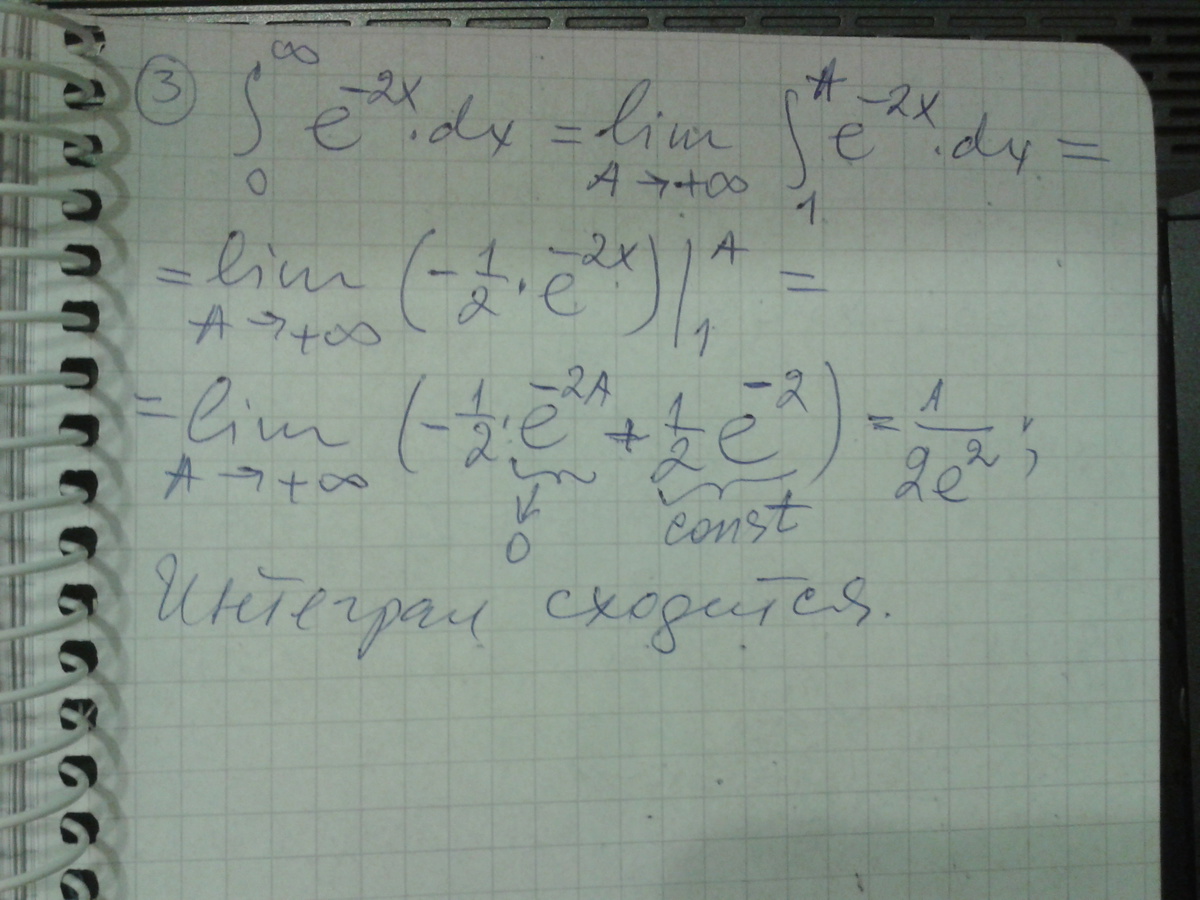 ③ ∫₀^∞ e^{-2x}·dx = lim_{A→+∞} ∫₁^A e^{-2x}·dx =
= lim_{A→+∞} (-1/2·e^{-2x})|₁^A =
= lim_{A→+∞} (-1/2·e^{-2A} + 1/2 e^{-2}) = 1/(2e²);
↓ 0 const
Интеграл сходится.